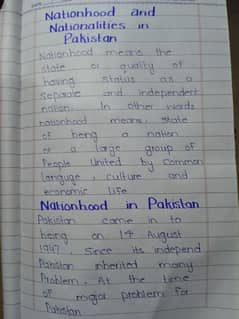 Nationhood and
Nationalities in
Pakistan
Nationhood means the
state or quality of
having status as a
separate and independent
nation. In other words
nationhood means, state
of being a nation
or a large group of
People United by Common
languge, culture and
economic life
Nationhood in Pakistan
Pakistan came in to
being on 14 August
1947, Since its independ
Pakistan inherited many
Problem. At the time
of major problem for
Pakistan